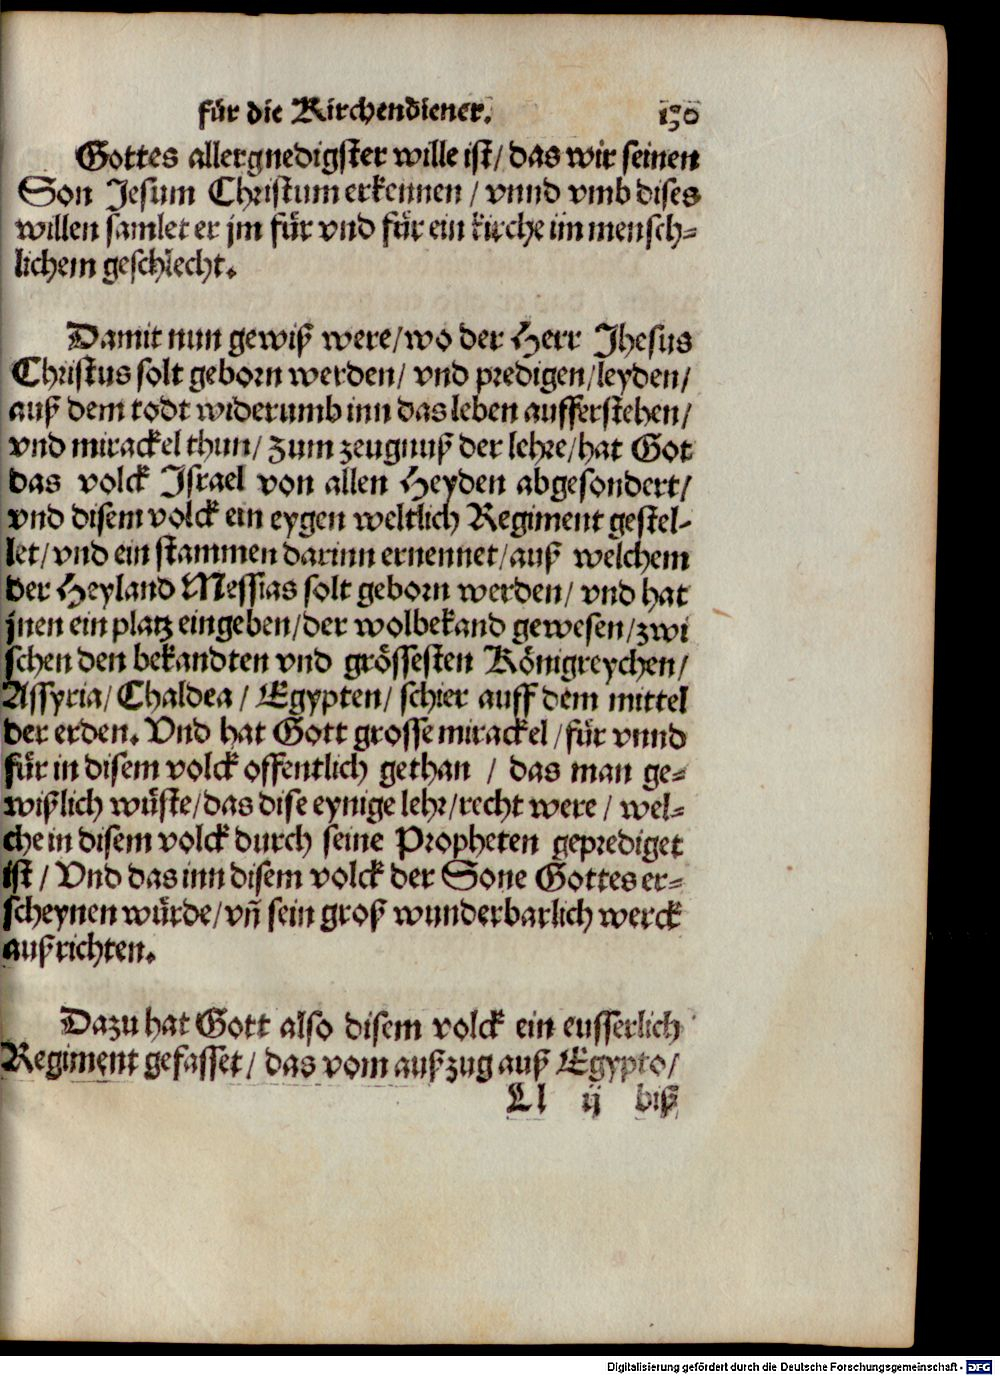 für die Kirchendiener. 130
Gottes allergnedigster wille ist/ das wir seinen
Son Jesum Christum erkennen / vnnd vmb dises
willen samlet er jm für vnd für ein kirche im mensch=
lichem geschlecht.
Damit nun gewiß were/ wo der Herr Jhesus
Christus solt geborn werden/ vnd predigen/ leyden/
auß dem todt widerumb inn das leben aufferstehen/
vnd mirackel thun/ zum zeugnuß der lehre/ hat Got
das volck Israel von allen Heyden abgesondert/
vnd disem volck ein eygen weltlich Regiment gestel-
let/ vnd ein stammen darinn ernennet/ auß welchem
der Heyland Messias solt geborn werden/ vnd hat
jnen ein platz eingeben/ der wolbekand gewesen/ zwi
schen den bekandten vnd grössesten Königreychen/
Assyria/ Chaldea / Egypten/ schier auff dem mittel
der erden. Vnd hat Gott grosse mirackel / für vnnd
für in disem volck offentlich gethan / das man ge=
wißlich wüste/ das dise eynige lehr/ recht were / wel=
che in disem volck durch seine Propheten geprediget
ist / Vnd das inn disem volck der Sone Gottes er=
scheynen würde/ vñ sein groß wunderbarlich werck
außrichten.
Dazu hat Gott also disem volck ein eusserlich
Regiment gefasset/ das vom außzug auß Egypto/
Ll ij biß
Digitalisierung gefördert durch die Deutsche Forschungsgemeinschaft - DFG